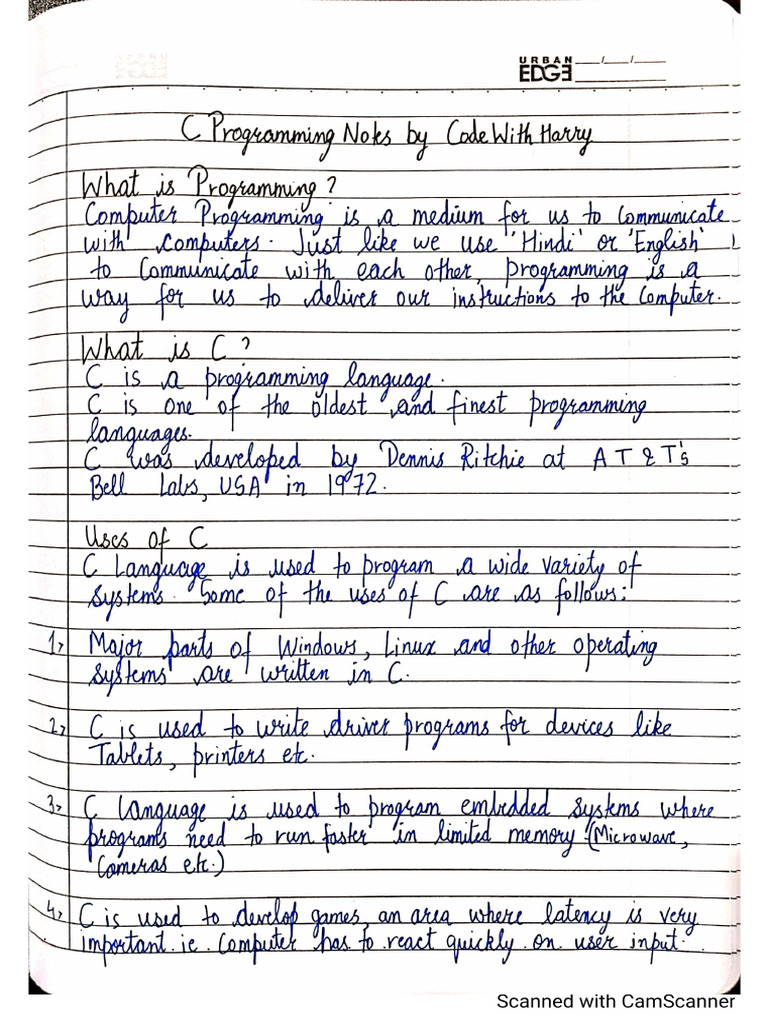 URBAN
EDGE
C Programming Notes by CodeWithHarry
What is Programming?
Computer Programming is a medium for us to Communicate
with computers. Just like we use 'Hindi' or 'English'
to Communicate with each other, programming is a
way for us to deliver our instructions to the Computer.
What is C?
C is a programming language.
C is one of the oldest and finest programming
languages.
C was developed by Dennis Ritchie at AT&T's
Bell Labs, USA in 1972.
Uses of C
C Language is used to program a wide variety of
systems. Some of the uses of C are as follows:
1> Major parts of Windows, Linux and other operating
systems are written in C.
2> C is used to write driver programs for devices like
Tablets, printers etc.
3> C language is used to program embedded systems where
programs need to run faster in limited memory (Microwave,
Cameras etc.)
4> C is used to develop games, an area where latency is very
important ie. Computer has to react quickly on user input.
Scanned with CamScanner